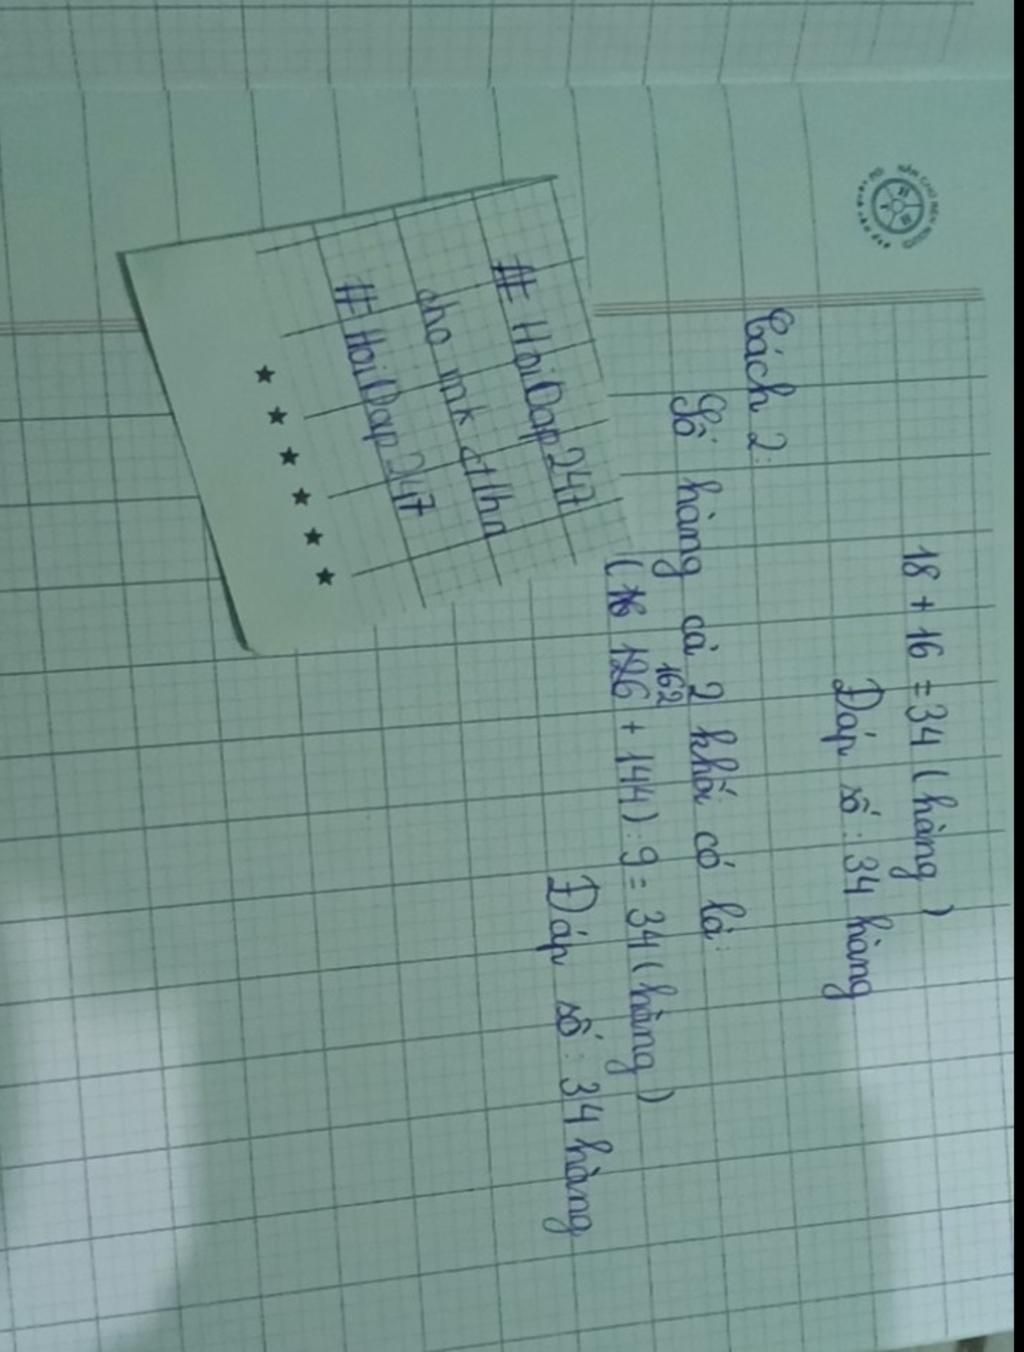 18 + 16 = 34 (hàng)
Đáp số: 34 hàng
Cách 2:
Số hàng cả 2 khối có là:
162
( 126 + 144) : 9 = 34 (hàng)
Đáp số: 34 hàng
# HoiDap 247
cho mk ctlhn
# HoiDap 247